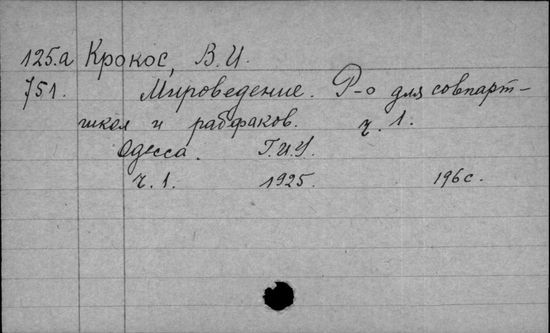 125.а Крокос, В.И.
751. Мироведение. Р-о для совпарт-
школ и рабфаков. ч. 1.
Одесса. Г.И.У.
ч. 1. 1925. 196 с.